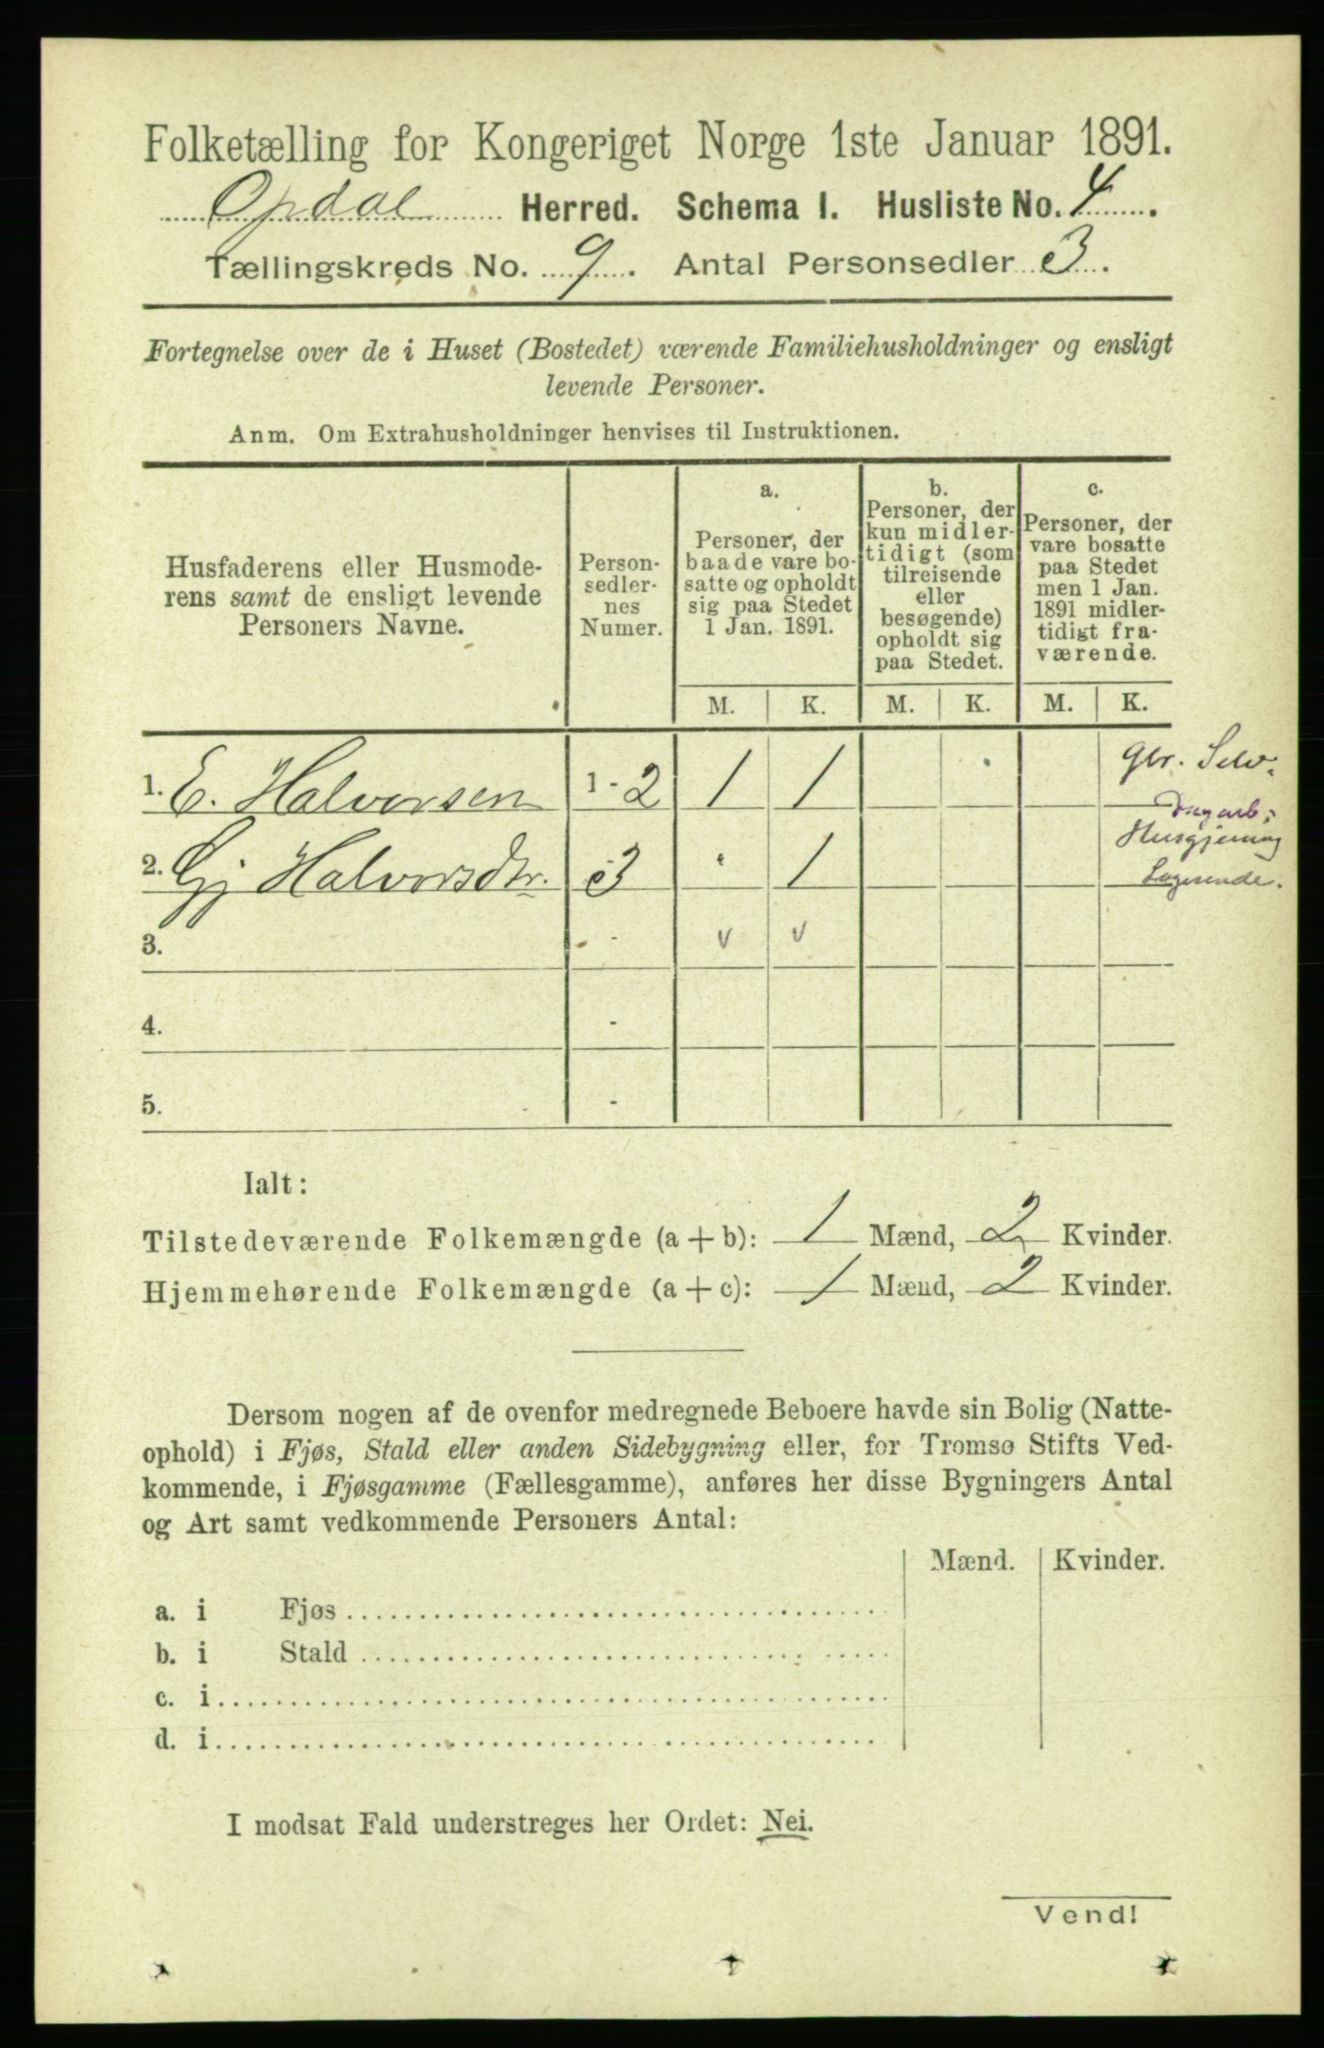 Folketælling for Kongeriget Norge 1ste Januar 1891.
Opdal Herred. Schema 1. Husliste No. 4.
Tællingskreds No. 9. Antal Personsedler 3.
Fortegnelse over de i Huset (Bostedet) værende Familiehusholdninger og ensligt
levende Personer.
Anm. Om Extrahusholdninger henvises til Instruktionen.
Husfaderens eller Husmode-
rens samt de ensligt levende
Personers Navne.
Person-
sedler-
nes
Numer.
a.
Personer, der
baade vare bo-
satte og opholdt
sig paa Stedet
1 Jan. 1891.
b.
Personer, der
kun midler-
tidigt (som
tilreisende
eller
besøgende)
opholdt sig
paa Stedet.
c.
Personer, der
vare bosatte
paa Stedet
men 1 Jan.
1891 midler-
tidigt fra-
værende.
M. K. M. K. M. K.
1. E. Halvorsen 1-2 1 1 Gbr. Selv.
Dagarb.
Husgjerning
2. Gj Halvorsdtr. 3 1 Logerende.
3. - v v
4. -
5. -
Ialt:
Tilstedeværende Folkemængde (a + b): 1 Mænd, 2 Kvinder.
Hjemmehørende Folkemængde (a + c): 1 Mænd, 2 Kvinder.
Dersom nogen af de ovenfor medregnede Beboere havde sin Bolig (Natte-
ophold) i Fjøs, Stald eller anden Sidebygning eller, for Tromsø Stifts Ved-
kommende, i Fjøsgamme (Fællesgamme), anføres her disse Bygningers Antal
og Art samt vedkommende Personers Antal:
Mænd. Kvinder.
a. i Fjøs
b. i Stald
c. i
d. i
I modsat Fald understreges her Ordet: Nei.
Vend!